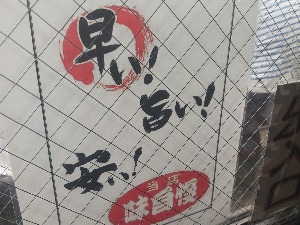 早い!
旨い!
安い!
当店
味自慢